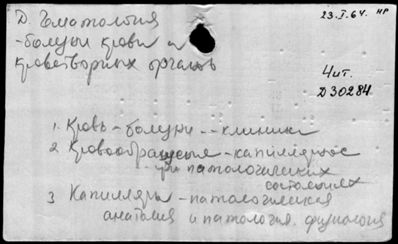 Д. Гематология
23.I.64. НР
-болезни крови и
кроветворных органов
Чит.
Д30284
1. Кровь - болезни -- клиника
2 Кровообращение - капиллярное
- при патологических
состояниях
3 Капилляры - патологическая
анатомия и патология. физиология